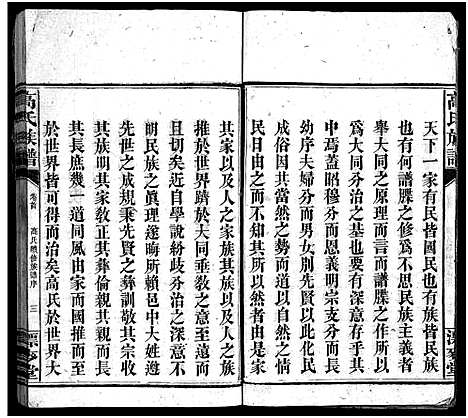 高氏族譜
漂麥堂
天下一家有民皆國民也有族皆民族
也有何譜牒之修為不思民族主義者
舉大同之原理而言譜牒之作用者
為大同分治之基也要有深意存乎其
中焉蓋昭穆分而恩義明宗支分而長
幼序夫婦分而男女別先賢以此化民
成俗因其當然之勢而道以自然之
民日由之而不知其所以由者是由家
其家以及人之家由其族以及人之族
推於世界躋於大同垂敎之意至深
且切矣近自學說紛歧分治之深意不
明民族之真理遂晦所賴邑中大姓
先世之成規秉先賢之彝訓敬其宗收
其族明其家敎正其彝倫親其親而長
其長庶幾一道同風由家而國推而至
於世界皆可得而治矣高氏於世界大
高氏族譜
卷首 高氏續修族譜序 三
漂麥堂